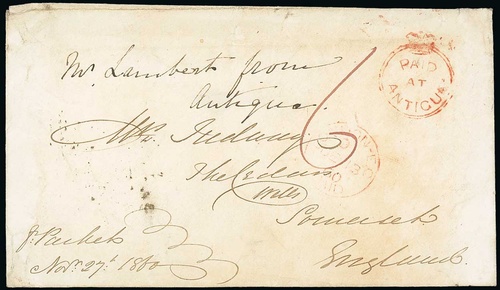 Mr. Lambert from
Antigua.
6
PAID
AT
ANTIGUA
Mrs. Tudway
The Cedars
Wells
Somerset
England.
pr. Packet
Novr. 27th. 1860